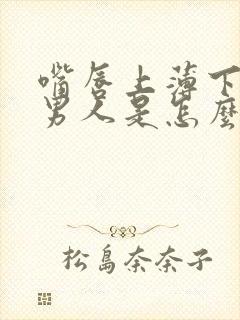 嘴唇上薄下
男人是怎麼
松島奈奈子